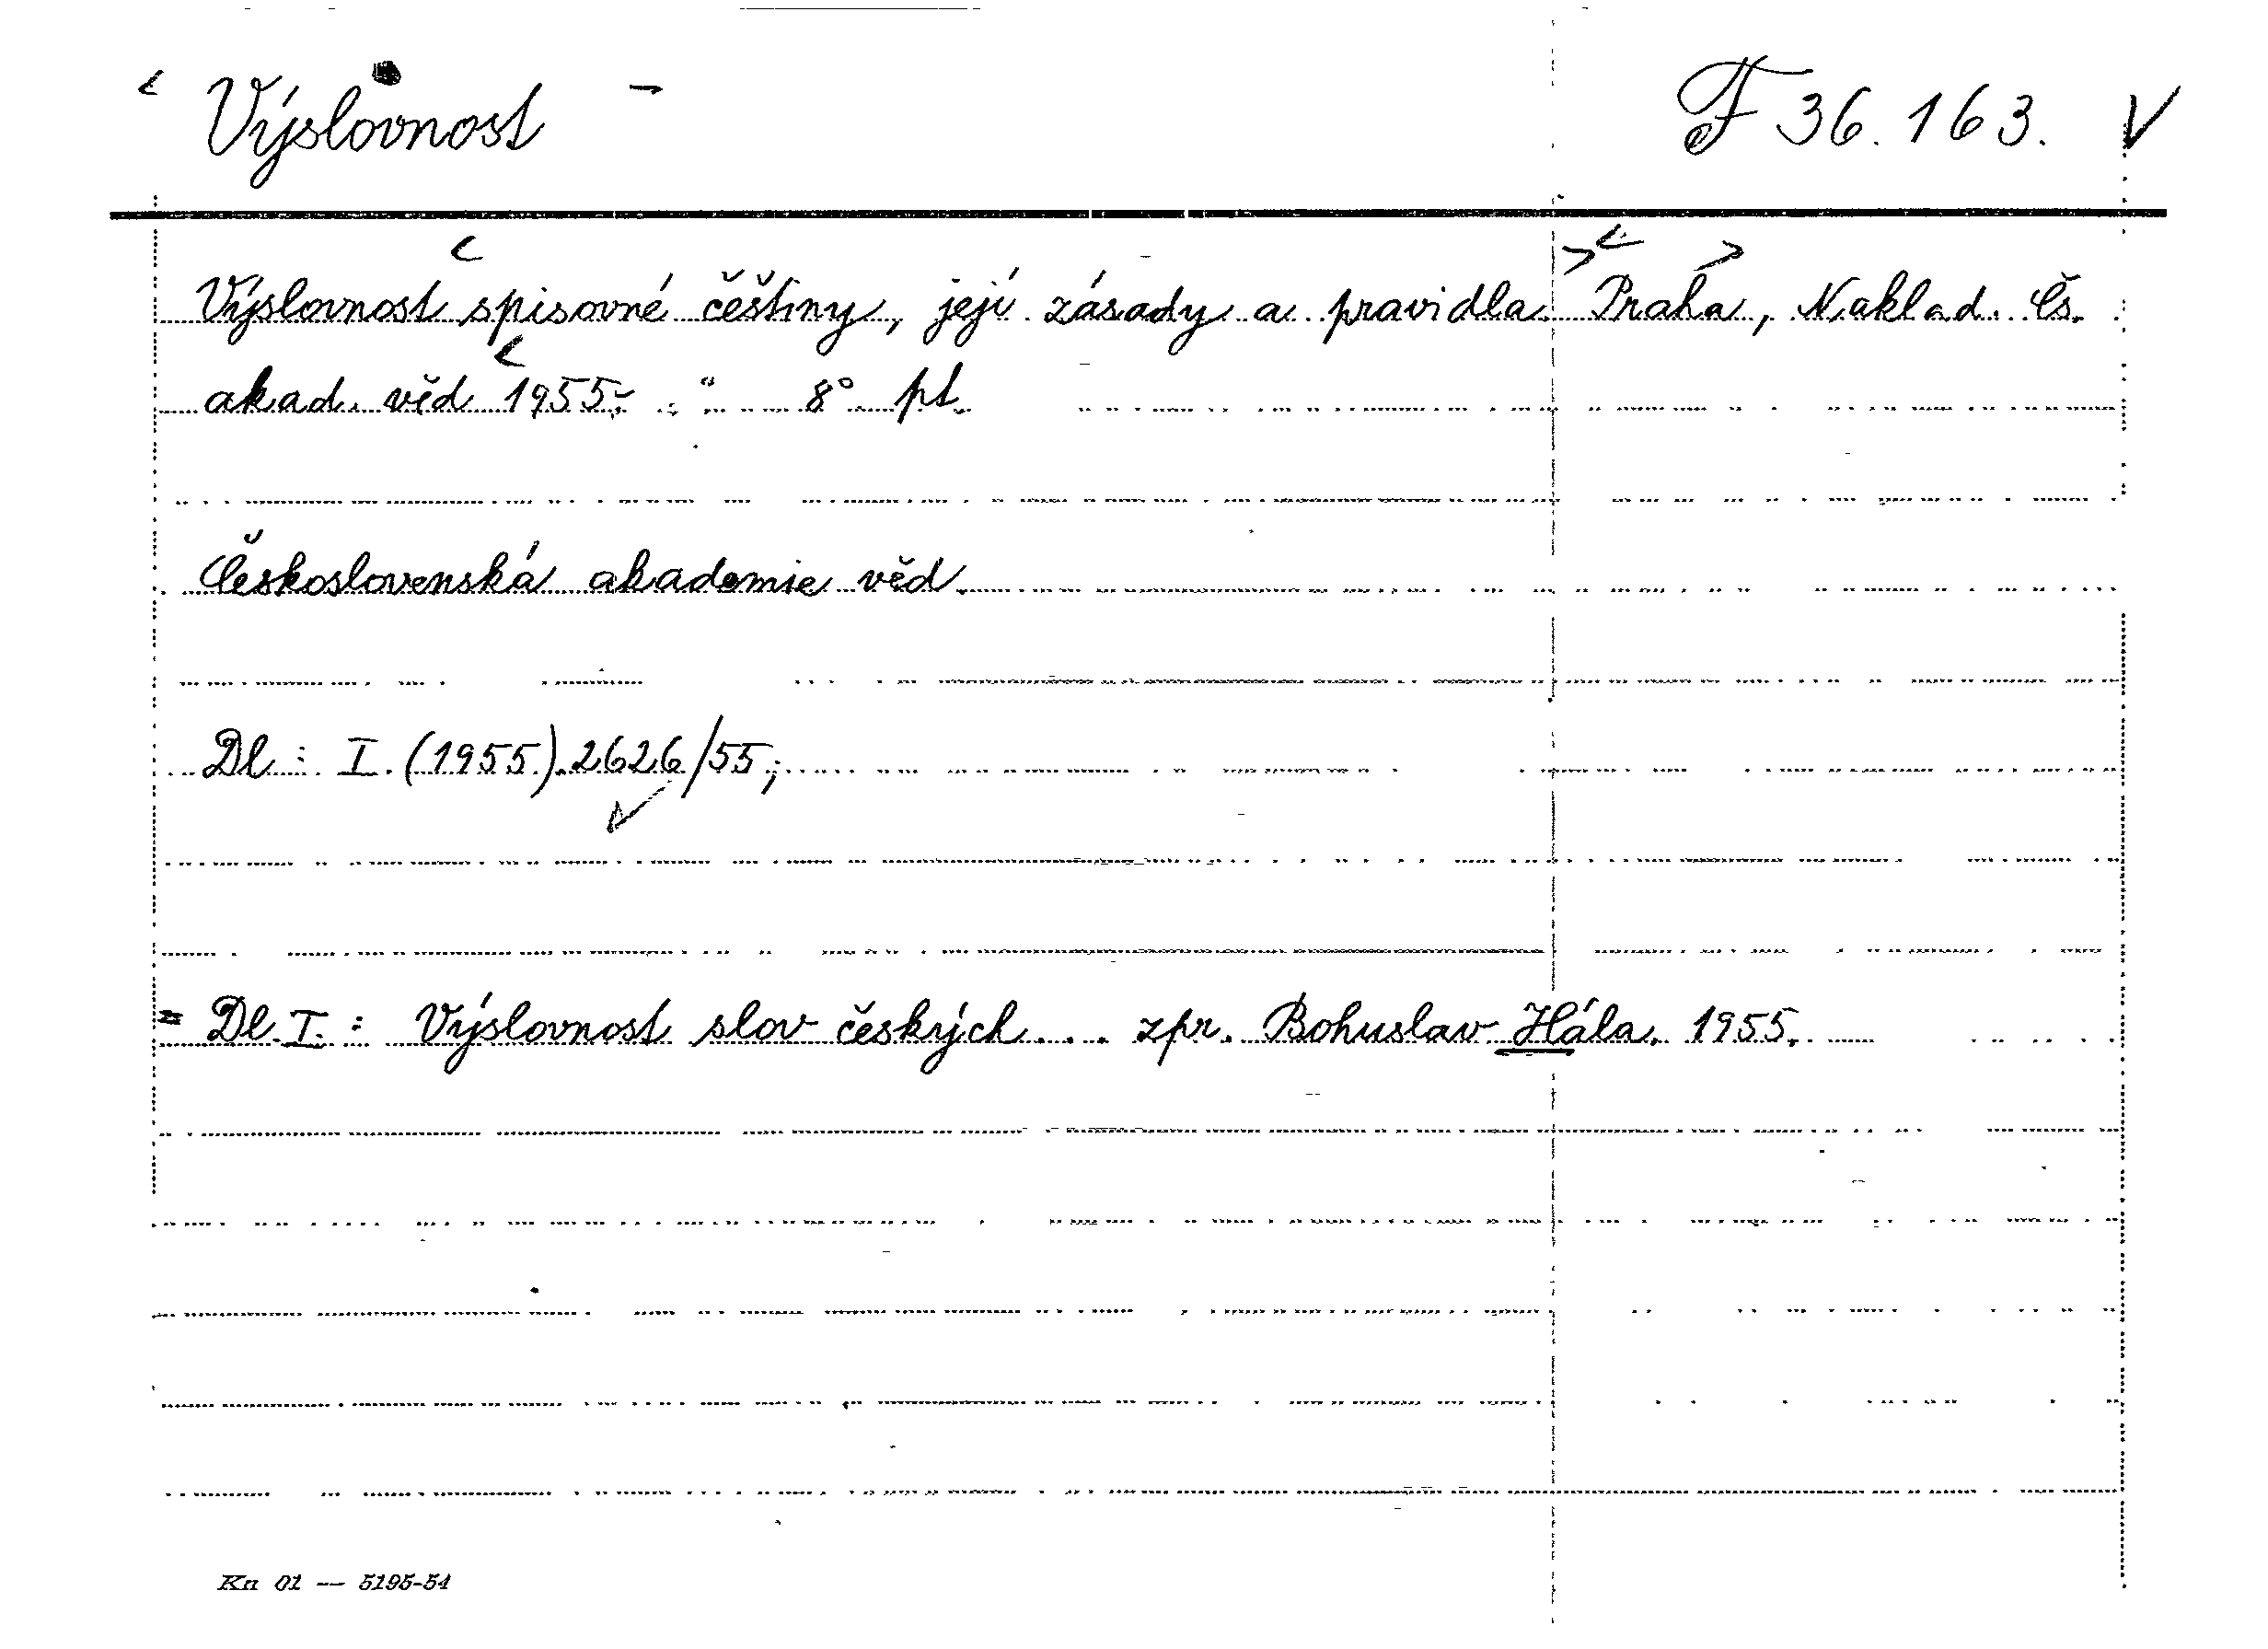 Výslovnost F 36.163. V
Výslovnost spisovné češtiny, její zásady a pravidla. Praha, Naklad. Čs.
akad. věd 1955.- " 8° pt.
Československá akademie věd
Dl : I. (1955) 2626/55;
= Dl. I. : Výslovnost slov českých... zpr. Bohuslav Hála. 1955.
Kn 01 — 5195-54